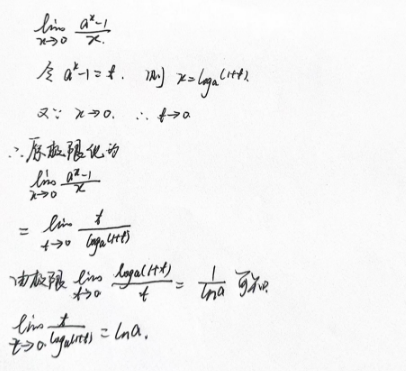 lim x→0 (a^x-1)/x.
令 a^x-1=t. 则 x=log_a(1+t).
又∵ x→0. ∴ t→0
∴原极限化为
lim x→0 (a^x-1)/x
= lim t→0 t/log_a(1+t)
由极限 lim t→0 log_a(1+t)/t = 1/lna 可知.
lim t→0. t/log_a(1+t) = lna.